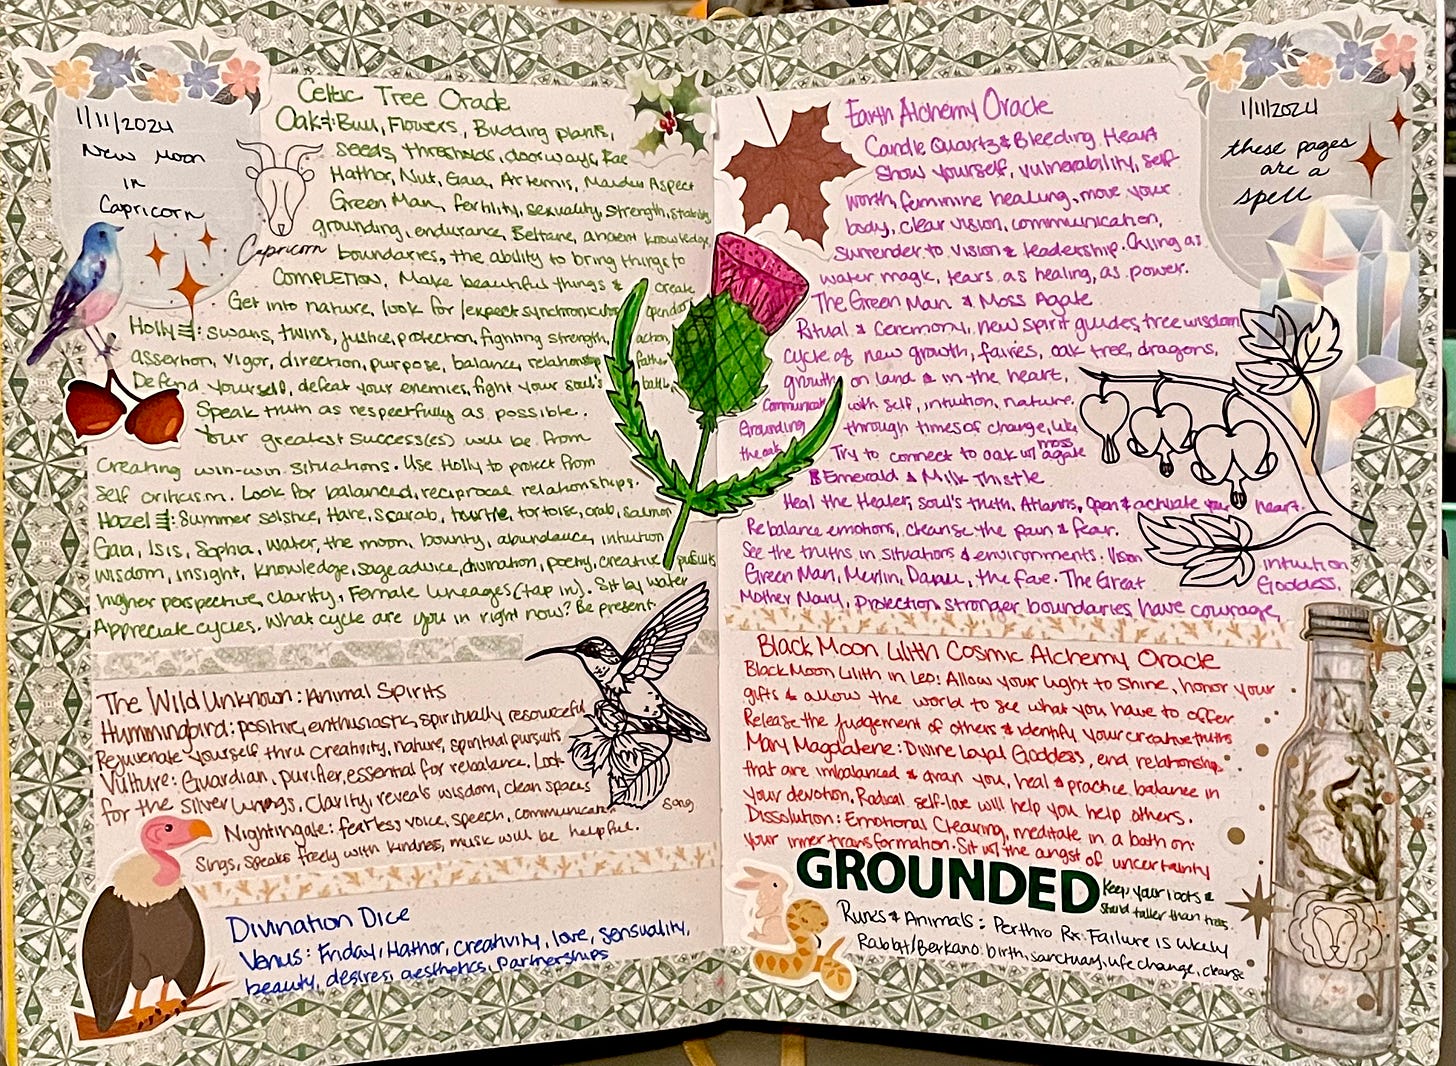 1/11/2024
New Moon
in
Capricorn
Capricorn
Celtic Tree Oracle
Oak: Bull, Flowers, Budding plants,
seeds, thresholds, doorways, Fae
Hathor, Nut, Gaia, Artemis, Maiden Aspect
Green Man, fertility, sexuality, strength, stability,
grounding, endurance, Beltane, ancient knowledge,
boundaries, the ability to bring things to
COMPLETION. Make beautiful things & create
Get into nature, look for/expect synchronicity
Holly: swans, twins, justice, protection, fighting strength, action,
assertion, vigor, direction, purpose, balance, relationship, father
Defend yourself, defeat your enemies, fight your soul's battle
Speak truth as respectfully as possible.
Your greatest success(es) will be from
creating win-win situations. Use Holly to protect from
self criticism. Look for balanced, reciprocal relationships.
Hazel: Summer solstice, Hare, Scarab, turtle, tortoise, crab, Salmon
Gaia, Isis, Sophia, water, the moon, bounty, abundance, intuition
wisdom, insight, knowledge, sage advice, divination, poetry, creative pursuits
higher perspective, clarity, Female lineages (tap in). Sit by water
Appreciate cycles. What cycle are you in right now? Be present.
The Wild Unknown: Animal Spirits
Hummingbird: positive, enthusiastic, spiritually resourceful
Rejuvenate yourself thru creativity, nature, spiritual pursuits
Vulture: Guardian, purifier, essential for rebalance. Look
for the silver linings, clarity, reveals wisdom, clean spaces
Nightingale: fearless voice, speech, communication song
Sings, speaks freely with kindness, music will be helpful.
Divination Dice
Venus: Friday, Hathor, creativity, love, sensuality,
beauty, desires, aesthetics, partnerships
1/11/2024
these pages
are a
spell
Earth Alchemy Oracle
Candle Quartz & Bleeding Heart
Show yourself, vulnerability, self
worth, feminine healing, move your
body, clear vision, communication,
Surrender to vision & leadership. Crying as
water magic, tears as healing, as power.
The Green Man & Moss Agate
Ritual & Ceremony, new spirit guides, tree wisdom
cycle of new growth, fairies, oak tree, dragons,
growth on land & in the heart,
Communicate with self, intuition, nature.
Grounding through times of change, like
the oak Try to connect to oak w/ moss agate
Emerald & Milk Thistle
Heal the Healer, soul's truth, Atlantis, Open & activate your heart.
Rebalance emotions, cleanse the pain & fear.
See the truths in situations & environments. Vision intuition
Green Man, Merlin, Danu, the fae. The Great Goddess,
Mother Mary, Protection, stronger boundaries, have courage,
Black Moon Lilith Cosmic Alchemy Oracle
Black Moon Lilith in Leo: Allow your light to shine, honor your
gifts & allow the world to see what you have to offer.
Release the judgement of others & identify your creative truths
Mary Magdalene: Divine Loyal Goddess, end relationships
that are imbalanced & drain you, heal & practice balance in
your devotion. Radical self-love will help you help others.
Dissolution: Emotional Clearing, meditate in a bath on
your inner transformation. Sit w/ the angst of uncertainty
GROUNDED
Keep your roots &
stand taller than trees
Runes & Animals: Perthro Rx: Failure is likely
Rabbit/Berkano: birth, sanctuary, life change, cleanse